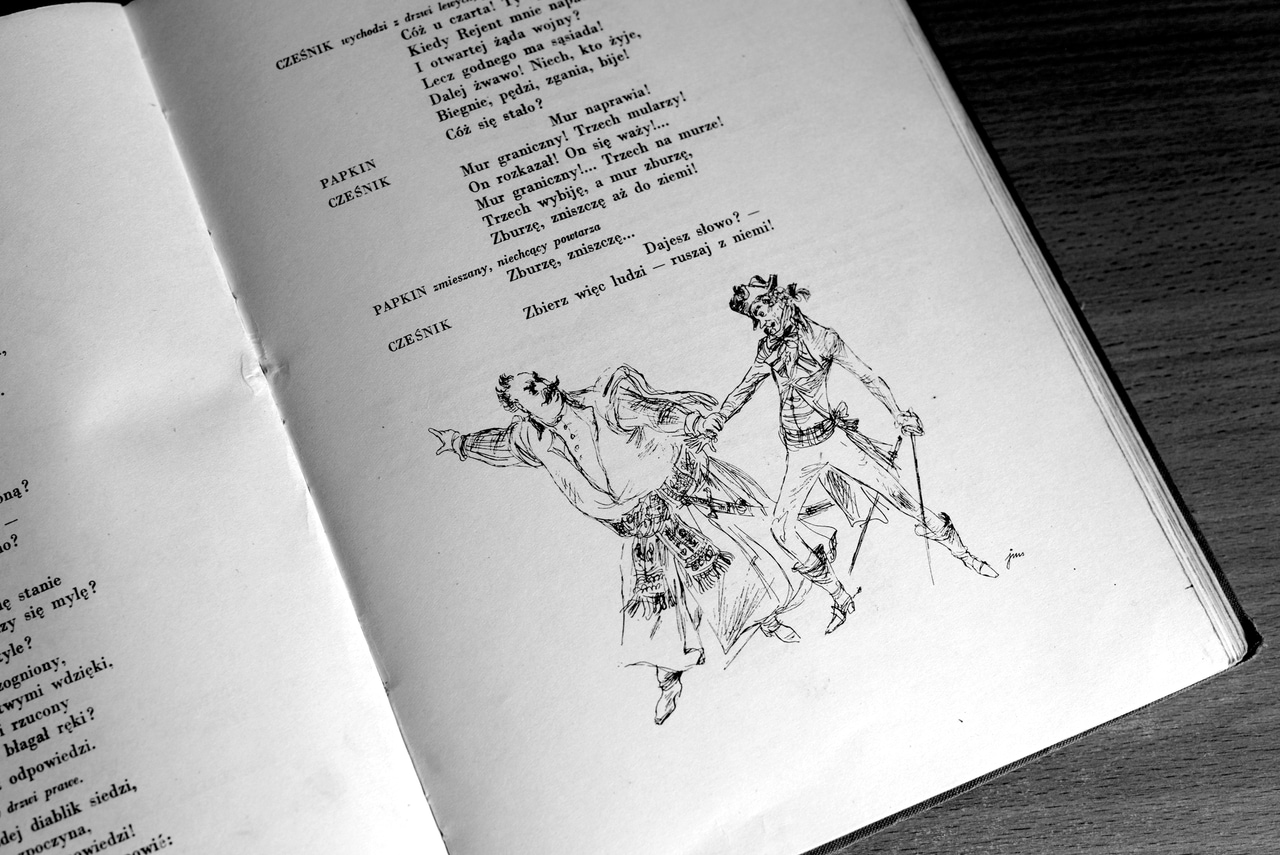 oną?
—
no?
ę stanie
zy się mylę?
tyle?
zogniony,
twymi wdzięki,
i rzucony
błagał ręki?
odpowiedzi.
drzwi prawe.
dej diablik siedzi,
zpoczyna,
owiedzi!
CZEŚNIK wychodzi z drzwi lewych
Cóż u czarta! Ty
Kiedy Rejent mnie napa
I otwartej żąda wojny?
Lecz godnego ma sąsiada!
Dalej żwawo! Niech, kto żyje,
Biegnie, pędzi, zgania, bije!
Cóż się stało?
PAPKIN Mur naprawia!
CZEŚNIK Mur graniczny! Trzech mularzy!
On rozkazał! On się waży!...
Mur graniczny!... Trzech na murze!
Trzech wybiję, a mur zburzę,
Zburzę, zniszczę aż do ziemi!
PAPKIN zmieszany, niechcący powtarza
Zburzę, zniszczę...
CZEŚNIK Dajesz słowo? —
Zbierz więc ludzi — ruszaj z niemi!
jms